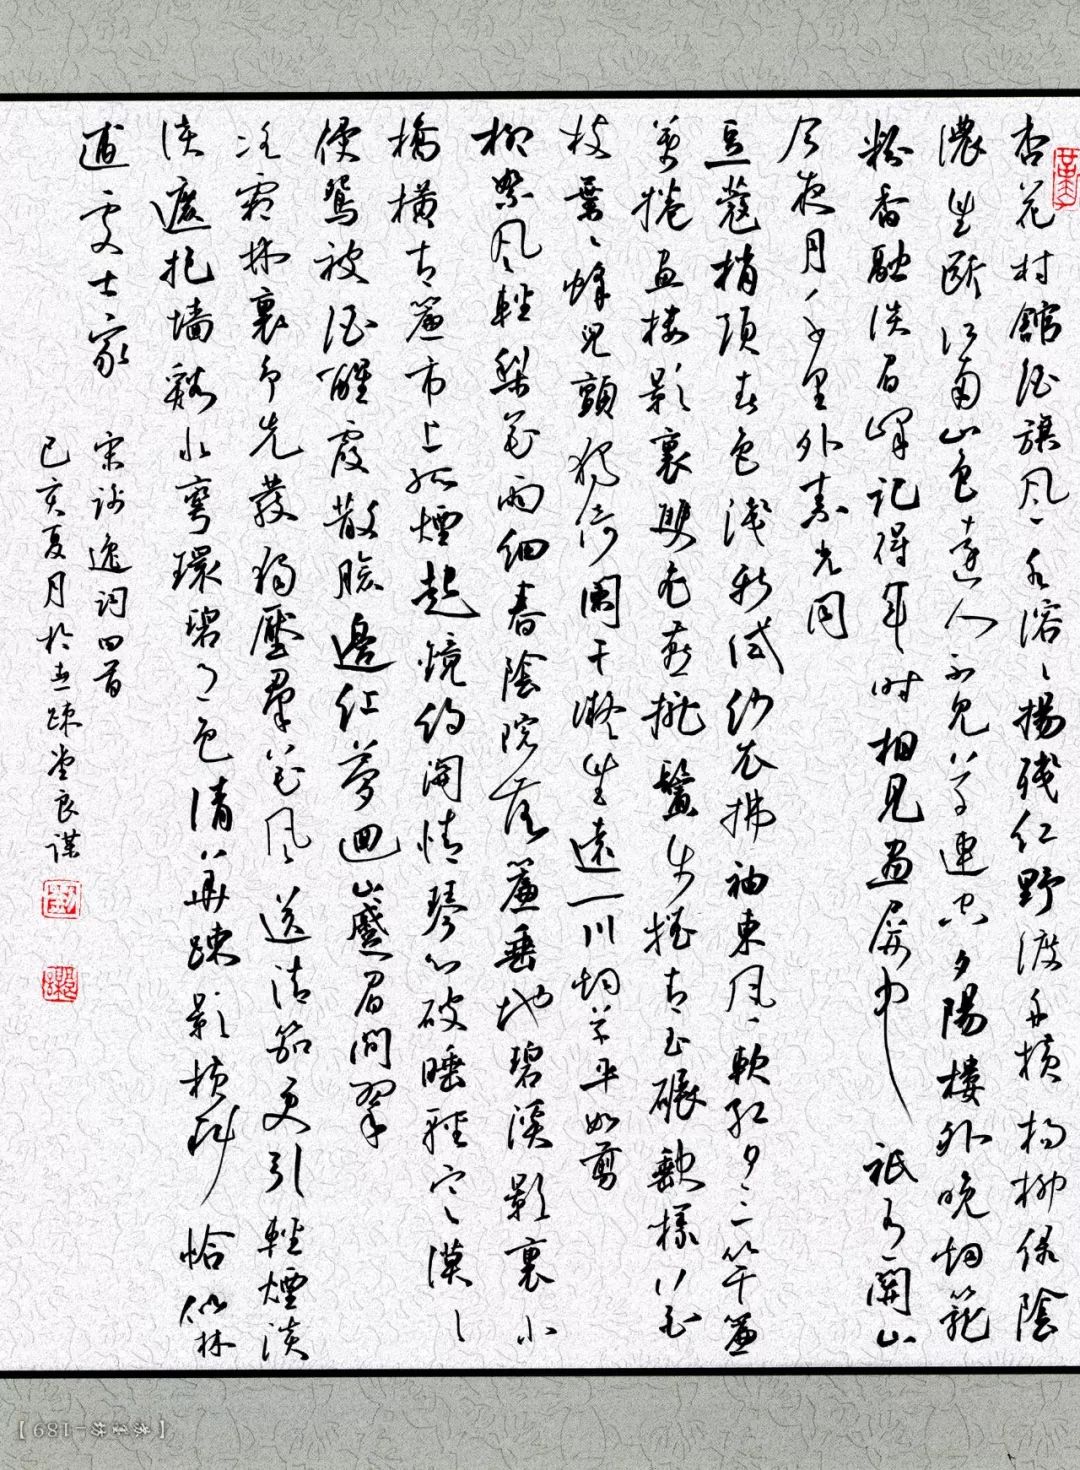 杏花村館酒旗風水溶〻揚殘紅野渡舟橫楊柳綠陰
濃望斷江南山色遠人不見草連空夕陽樓外晚烟籠
粉香融淡眉峰記得年時相見畫屏中祇有關山
今夜月千里外素光同
豆蔻梢頭春色淺新試紗衣拂袖東風軟紅日三竿簾
幕捲畫樓影裏雙飛燕攏鬢步搖青玉碾缺樣花
枝葉〻蜂兒顫獨倚闌干凝望遠一川烟草平如剪
柳絮風輕梨花雨細春陰院落簾垂地碧溪影裏小
橋橫青簾市上孤煙起鏡約關情琴心破睡輕寒漠〻
侵鴛被酒醒霞散臉邊紅夢回山蹙眉間翠
冰霜林裏爭先發獨壓羣花風送清笳更引輕煙淡
淡遮抱墻谿水彎環碧月色清華疎影橫斜恰似林
逋處士家
宋謝逸詞四首
己亥夏月於疎堂良謀